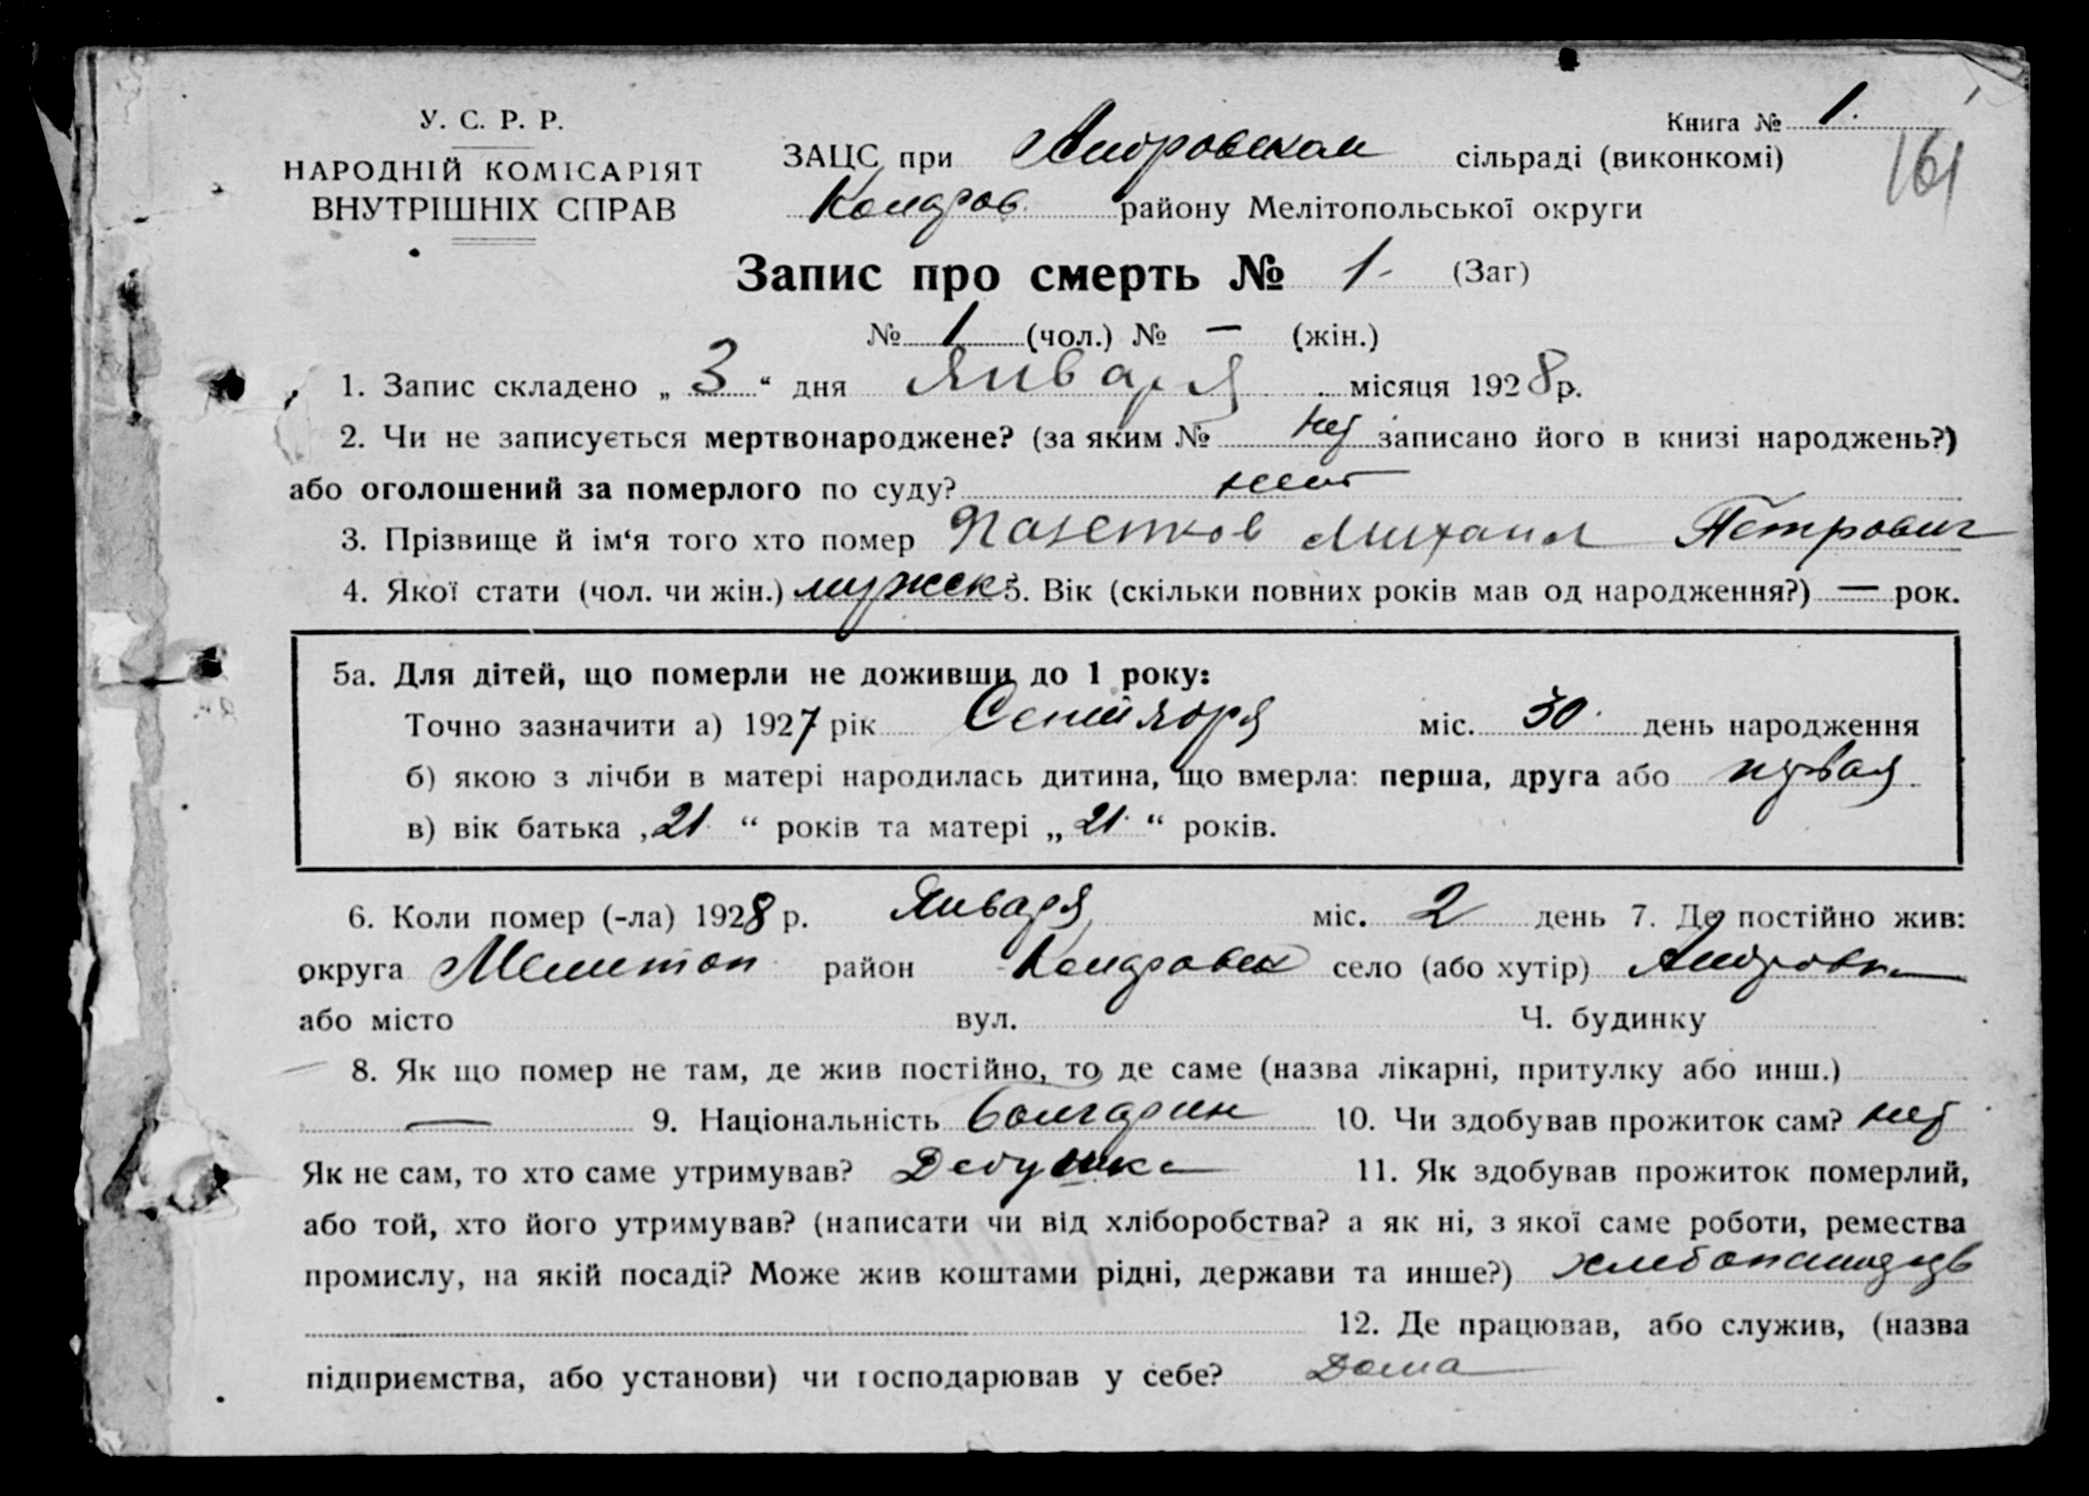 Книга № 1.
161
У. С. Р. Р.
НАРОДНІЙ КОМІСАРІЯТ
ВНУТРІШНІХ СПРАВ
ЗАЦС при сільраді (виконкомі)
району Мелітопольської округи
Запис про смерть № 1. (Заг)
№ 1 (чол.) № — (жін.)
1. Запис складено „ 3 “ дня Января місяця 1928 р.
2. Чи не записується мертвонароджене? (за яким № нет записано його в книзі народжень?)
або оголошений за померлого по суду? нет
3. Прізвище й ім‘я того хто помер Михаил Петрович
4. Якої стати (чол. чи жін.) мужск 5. Вік (скільки повних років мав од народження?) — рок.
5а. Для дітей, що померли не доживши до 1 року:
Точно зазначити а) 1927 рік Сентября міс. 30 день народження
б) якою з лічби в матері народилась дитина, що вмерла: перша, друга або
в) вік батька „ 21 “ років та матері „ 21 “ років.
6. Коли помер (-ла) 1928 р. Января міс. 2 день 7. Де постійно жив:
округа Мелитоп район село (або хутір)
або місто вул. Ч. будинку
8. Як що помер не там, де жив постійно, то де саме (назва лікарні, притулку або инш.)
— 9. Національність болгарин 10. Чи здобував прожиток сам? нет
Як не сам, то хто саме утримував? Дедушка 11. Як здобував прожиток померлий,
або той, хто його утримував? (написати чи від хліборобства? а як ні, з якої саме роботи, ремества
промислу, на якій посаді? Може жив коштами рідні, держави та инше?)
12. Де працював, або служив, (назва
підприємства, або установи) чи господарював у себе? Дома